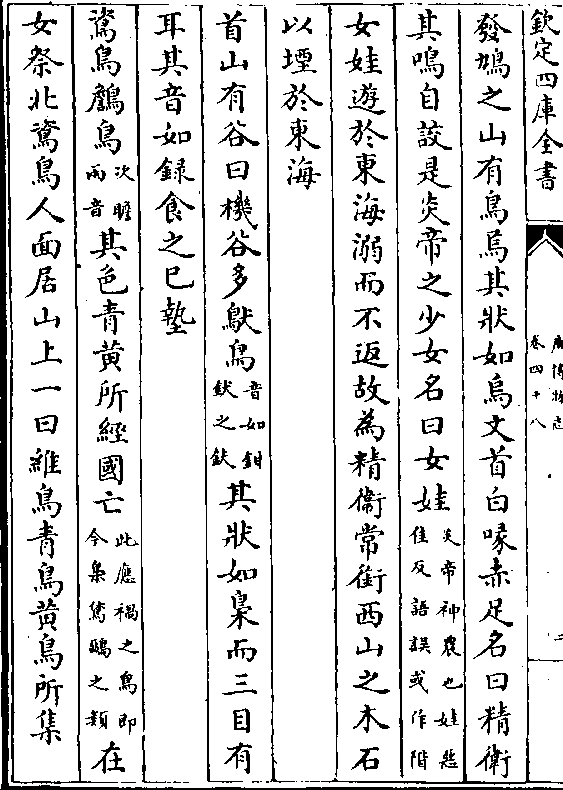 欽定四庫全書
廣博物志
卷四十八
二
發鳩之山有鳥焉其狀如烏文首白喙赤足名曰精衛
其鳴自詨是炎帝之少女名曰女娃炎帝神農也娃惡佳反語誤或作階
女娃遊於東海溺而不返故為精衛常銜西山之木石
以堙於東海
首山有谷曰機谷多䳅鳥音如鉗釱之釱其狀如梟而三目有
耳其音如録食之已墊
鴜鳥鶬鳥次瞻兩音其色青黄所經國亡此應禍之鳥即今梟鵂鶹之類在
女祭北鴜鳥人面居山上一曰維鳥青鳥黄鳥所集